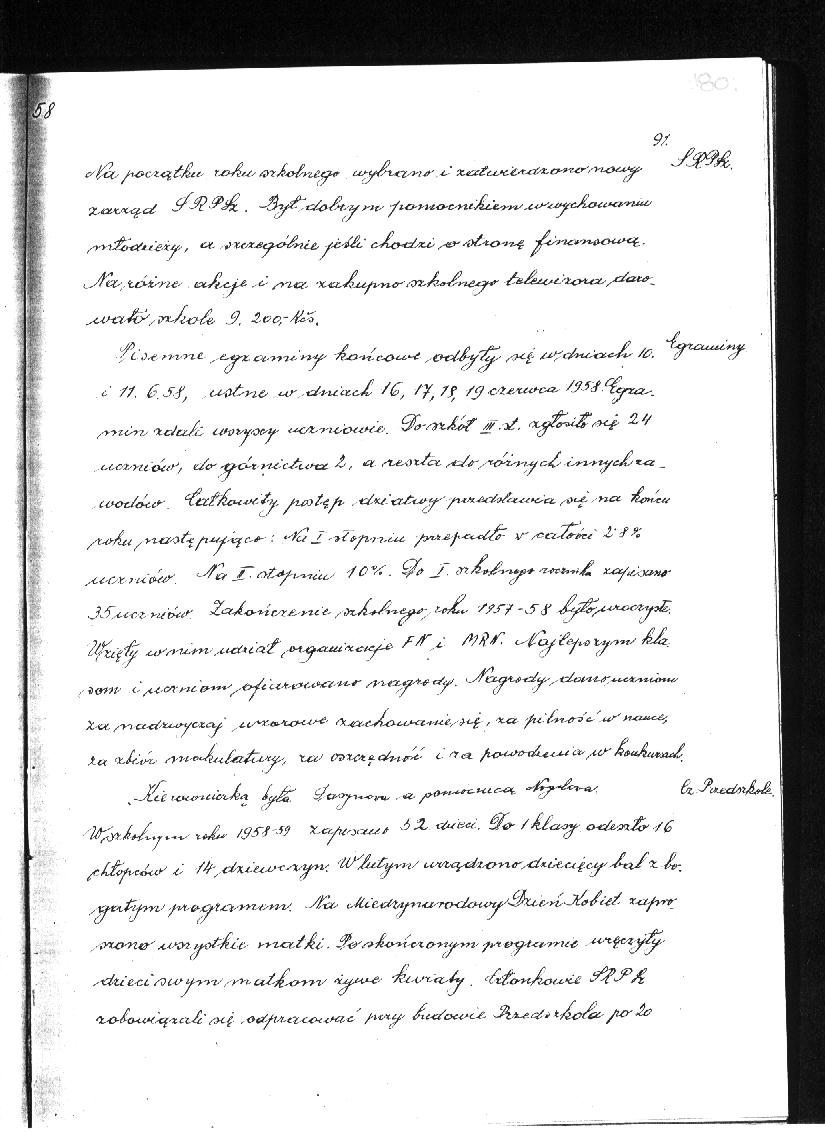 180.
58
91.
Na początku roku szkolnego wybrano i zatwierdzono nowy
SRPSz.
zarząd SRPSz. Był dobrym pomocnikiem w wychowaniu
młodzieży, a szczególnie jeśli chodzi o stronę finansową.
Na różne akcje i na zakupno szkolnego telewizora daro-
wało szkole 9.200,- Kčs.
Pisemne egzaminy końcowe odbyły się w dniach 10.
Egzaminy
i 11. 6. 58, ustne w dniach 16, 17, 18, 19 czerwca 1958. Egza-
min zdali wszyscy uczniowie. Do szkół III. st. zgłosiło się 24
uczniów, do górnictwa 2, a reszta do różnych innych za-
wodów. Całkowity postęp dziatwy przedstawia się na końcu
roku następująco: Na I stopniu przepadło w całości 2·8%
uczniów. Na II. stopniu 10%. Do I. szkolnego rocznika zapisano
35 uczniów. Zakończenie szkolnego roku 1957-58 było uroczyste.
Wzięły w nim udział organizacje FN i MRN. Najlepszym kla-
som i uczniom ofiarowano nagrody. Nagrody dano uczniom
za nadzwyczaj wzorowe zachowanie się, za pilność w nauce,
za zbiór makulatury, za oszczędność i za powodzenia w konkursach.
Kierowniczką była a pomocnicą
Cz. Przedszkole.
W szkolnym roku 1958-59 zapisano 52 dzieci. Do 1 klasy odeszło 16
chłopców i 14 dziewczyn. W lutym urządzono dziecięcy bal z bo-
gatym programem. Na Międzynarodowy Dzień Kobiet zapro-
szono wszystkie matki. Po skończonym programie wręczyły
dzieci swym matkom żywe kwiaty. Członkowie SRPSz
zobowiązali się odpracować przy budowie Przedszkola po 20